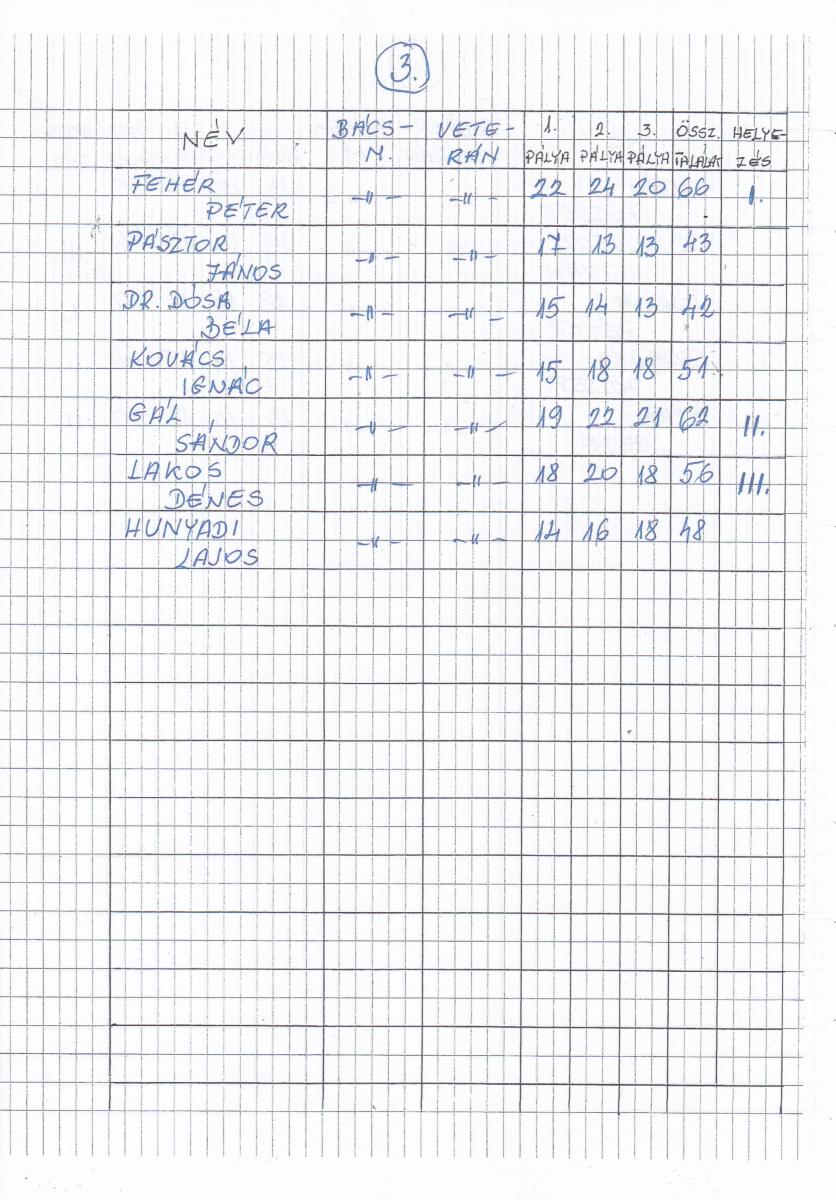 3.
NÉV BÁCS- VETE- 1. 2. 3. ÖSSZ. HELYE-
M. RÁN PÁLYA PÁLYA PÁLYA TALÁLAT ZÉS
FEHÉR 22 24 20 66 I.
PÉTER -"- -"-
PÁSZTOR 17 13 13 43
JÁNOS -"- -"-
DR. DÓSA 15 14 13 42
BÉLA -"- -"-
KOVÁCS 15 18 18 51
IGNÁC -"- -"-
GÁL 19 22 21 62 II.
SÁNDOR -"- -"-
LAKOS 18 20 18 56 III.
DÉNES -"- -"-
HUNYADI 14 16 18 48
LAJOS -"- -"-